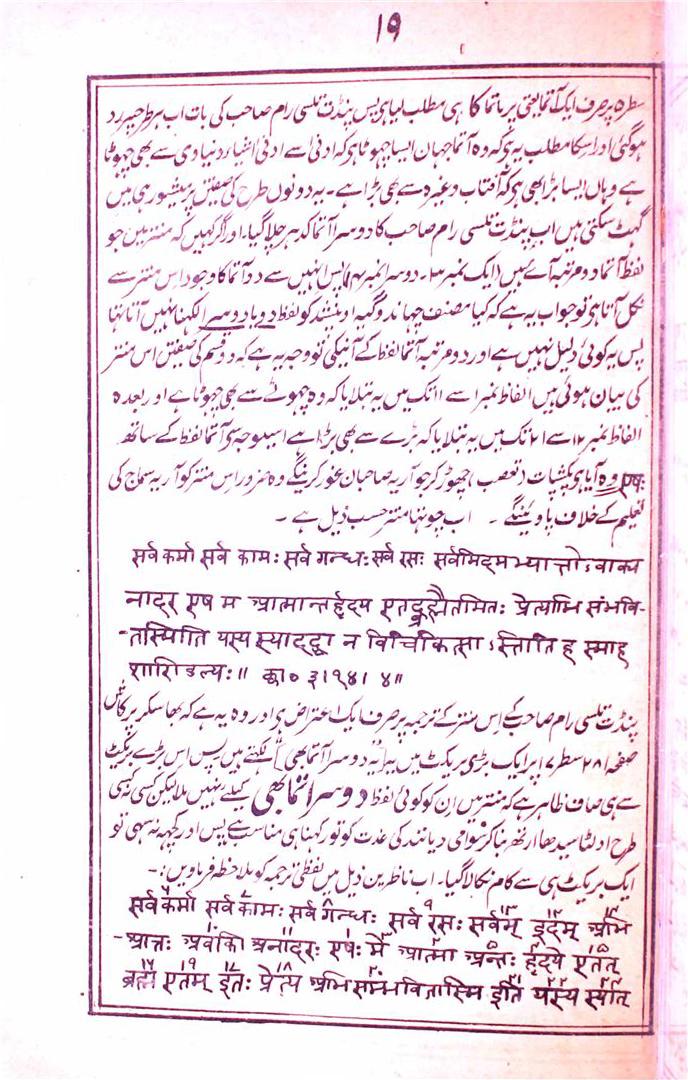 ۱۹
سطر ۵ پر صرف ایک آتما یعنی پرماتما کا ہی مطلب لیا ہی پس پنڈت تلسی رام صاحب کی بات اب ہر طرح پر رد
ہوگئی اور اسکا مطلب یہ ہی کہ وہ آتما جہان ایسا چھوٹا ہی کہ ادنیٰ سے ادنیٰ اشیاء دنیاوی سے بھی چھوٹا
ہے وہاں ایسا بڑا بھی ہی کہ آفتاب وغیرہ سے بھی بڑا ہے۔ یہ دونوں طرح کی صفتیں پرمیشور ہی میں
گھٹ سکتی ہیں اب پنڈت تلسی رام صاحب کا دوسرا آتما کدہر چلا گیا۔ اور اگر کہیں کہ منتر میں جو
لفظ آتما دو مرتبہ آئے ہیں (ایک نمبر ۳۔ دوسرا نمبر ۱۴) پس انہیں سے دو آتما کا وجود اس منتر سے
نکل آتا ہی تو جواب یہ ہے کہ کیا مصنف چہاندوگیہ اوپنیشد کو لفظ دو یا دوسرے لکھنا نہیں آتا تھا
پس یہ کوئی دلیل نہیں ہے اور دو مرتبہ آتما لفظ کے آنیکی تو وجہ یہ ہے کہ دو قسم کی صفتیں اس منتر
کی بیان ہوئی ہیں الفاظ نمبر ۱ سے ۱۱ تک میں یہ بتلایا کہ وہ چھوٹے سے بھی چھوٹا ہے اور بعدہ
الفاظ نمبر ۱۲ سے ۲۱ تک میں یہ بتلایا کہ بڑے سے بھی بڑا ہے اسیوجہ سی آتما لفظ کے ساتھ
एषः وہ آیا ہی پکشپات (تعصب) چھوڑ کر جو آریہ صاحبان غور کرینگے وہ ضرور اس منتر کو آریہ سماج کی
تعلیم کے خلاف پاوینگے ۔ اب چوتھا منتر حسب ذیل ہے ۔
सर्व कर्मा सर्व कामः सर्व गन्धः सर्व रसः सर्वमिदमभ्यात्तोऽवाक्य
नादर एष म आत्मान्तर्हृदय एतद्ब्रह्मैतमितः प्रेत्याभि संभवि-
-तास्मीति यस्य स्यादद्धा न विचिकित्साऽस्तीति ह स्माह
शाण्डिल्यः॥ छा० ३।१४। ४॥
پنڈت تلسی رام صاحب کے اس منتر کے ترجمہ پر صرف ایک اعتراض ہی اور وہ یہ ہے کہ بھاسکر پرکاش
صفحہ ۲۸۱ سطر ۷ پر ایک بڑی بریکٹ میں یہ [یہ دوسرا آتما بھی] لکھتے ہیں پس اس بڑے بریکٹ
سے ہی صاف ظاہر ہے کہ منتر میں ان کو کوئی لفظ دوسرا آتما بھی کیلئے نہیں ملا لیکن کسی نہ کسی
طرح اولٹا سیدھا ارتھ بنا کر سوامی دیانند کی عدت کو تو رکھنا ہی مناسب ہے پس اور کچھ نہ سہی تو
ایک بریکٹ ہی سے کام نکالا گیا۔ اب ناظرین ذیل میں لفظی ترجمہ کو ملاحظہ فرماویں:۔
सर्व कर्मा सर्व कामः सर्व गन्धः सर्व रसः सर्वम् इदम् अभि
-आत्तः अवाकी अनादरः एषः मे आत्मा अन्तः हृदये एतत्
ब्रह्म एतम् इतः प्रेत्य अभि सम्भवितास्मि इति यस्य स्यात्